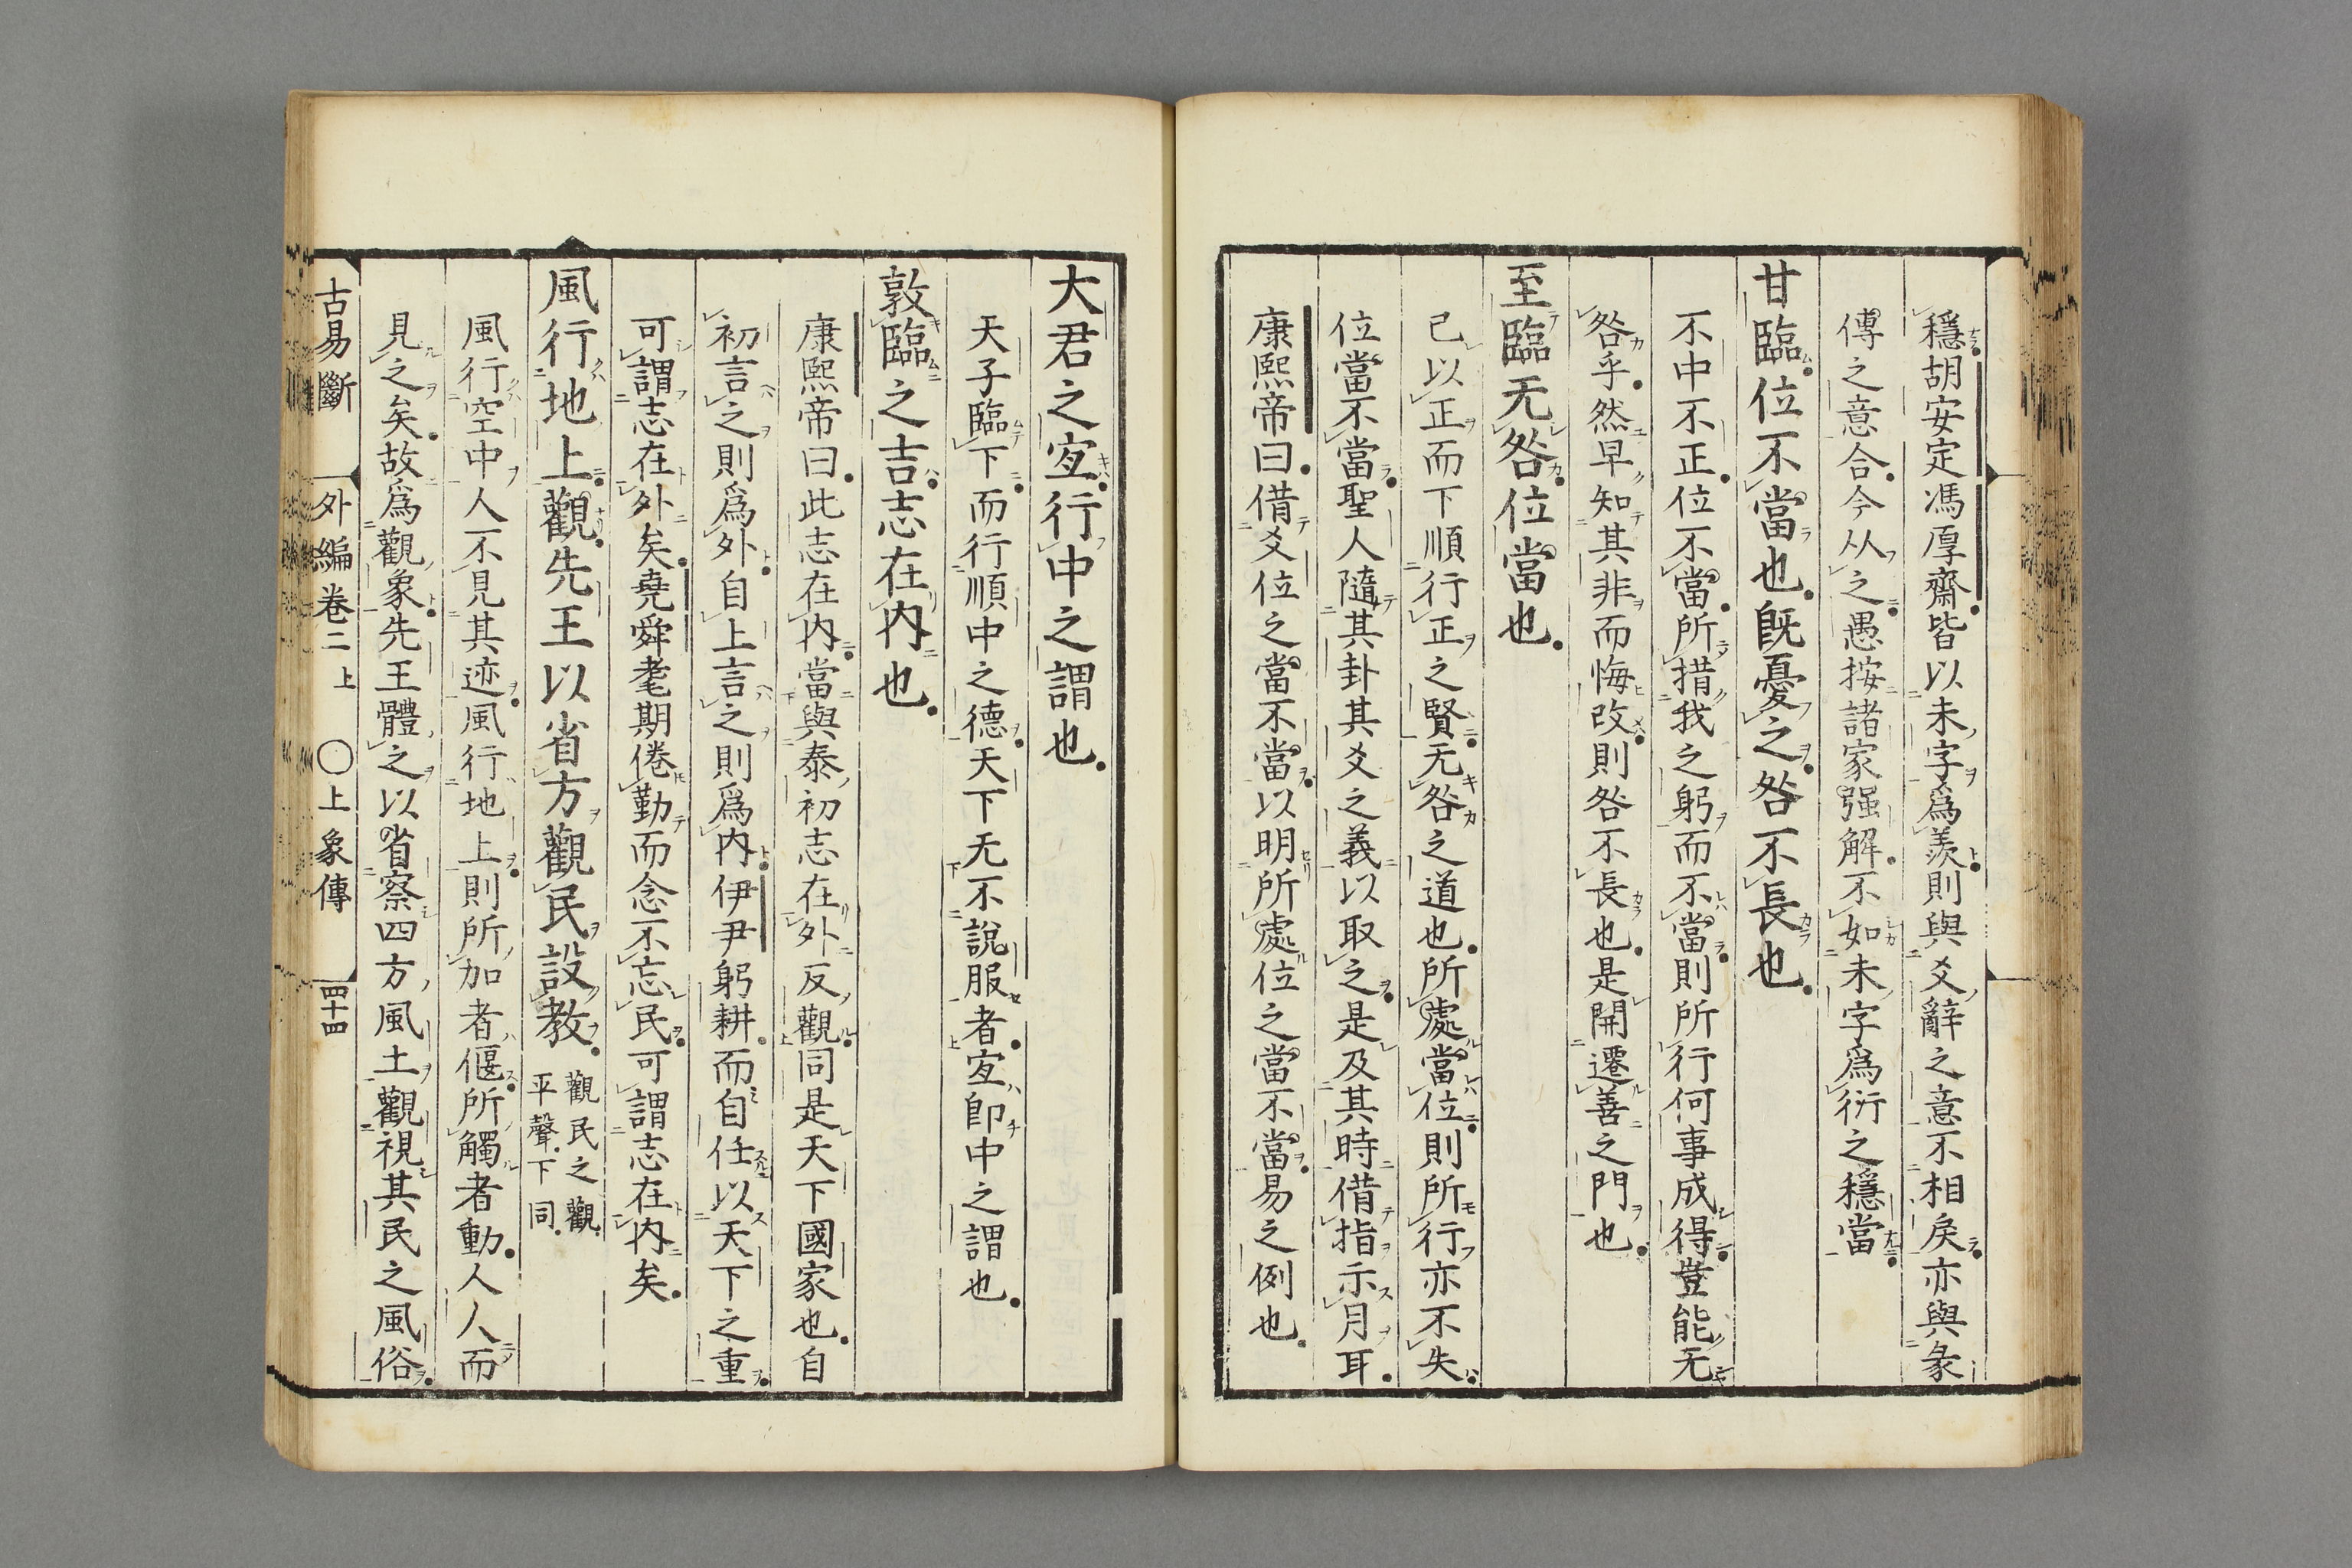 穩胡安定馮厚齋皆以未字爲羨則與爻辭之意不相戾亦與彖
傳之意合今从之愚按諸家强解不如未字爲衍之穩當
甘臨位不當也旣憂之咎不長也
不中不正位不當所措我之躬而不當則所行何事成得豈能无
咎乎然早知其非而悔改則咎不長也是開遷善之門也
至臨无咎位當也
己以正而下順行正之賢无咎之道也所處當位則所行亦不失
位當不當聖人隨其卦其爻之義以取之是及其時借指示月耳
康熙帝曰借爻位之當不當以明所處位之當不當易之例也
大君之宐行中之謂也
天子臨下而行順中之德天下无不說服者宐卽中之謂也
敦臨之吉志在內也
康熙帝曰此志在內當與泰初志在外反觀同是天下國家也自
初言之則爲外自上言之則爲內伊尹躬耕而自任以天下之重
可謂志在外矣堯舜耄期倦勤而念不忘民可謂志在內矣
風行地上觀先王以省方觀民設教 觀民之觀平聲下同
風行空中人不見其迹風行地上則所加者偃所觸者動人人而
見之矣故爲觀象先王體之以省察四方風土觀視其民之風俗
古易斷 外編卷二上 〇上象傳 四十四